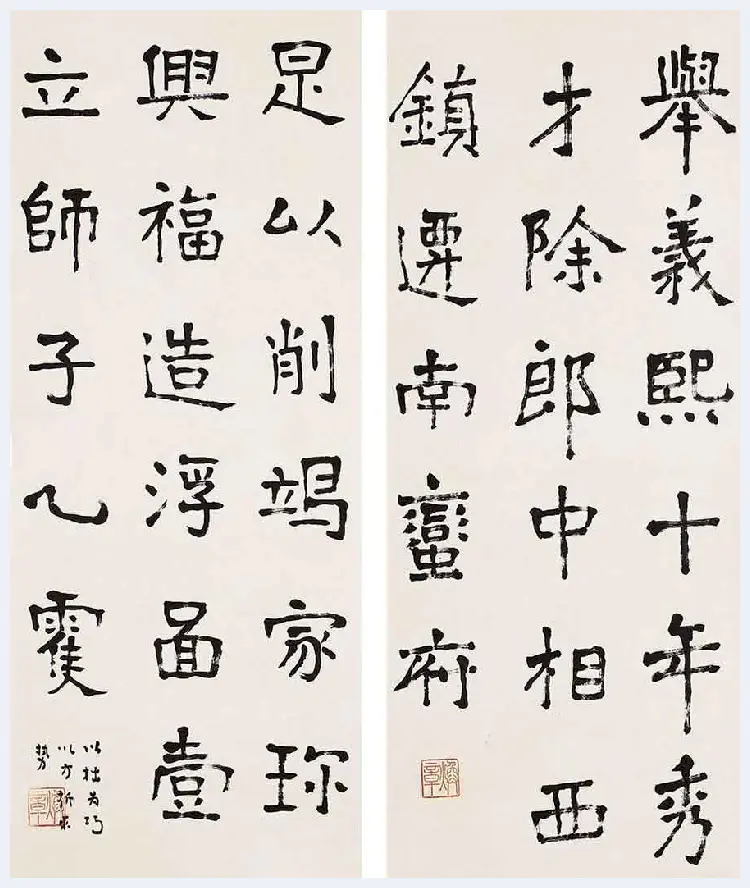 舉義熙十年秀
才除郎中相西
鎮遷南蠻府
足以削竭家珎
興福造浮啚壹
立師子乙䨥
以拙为巧
以方折求
势